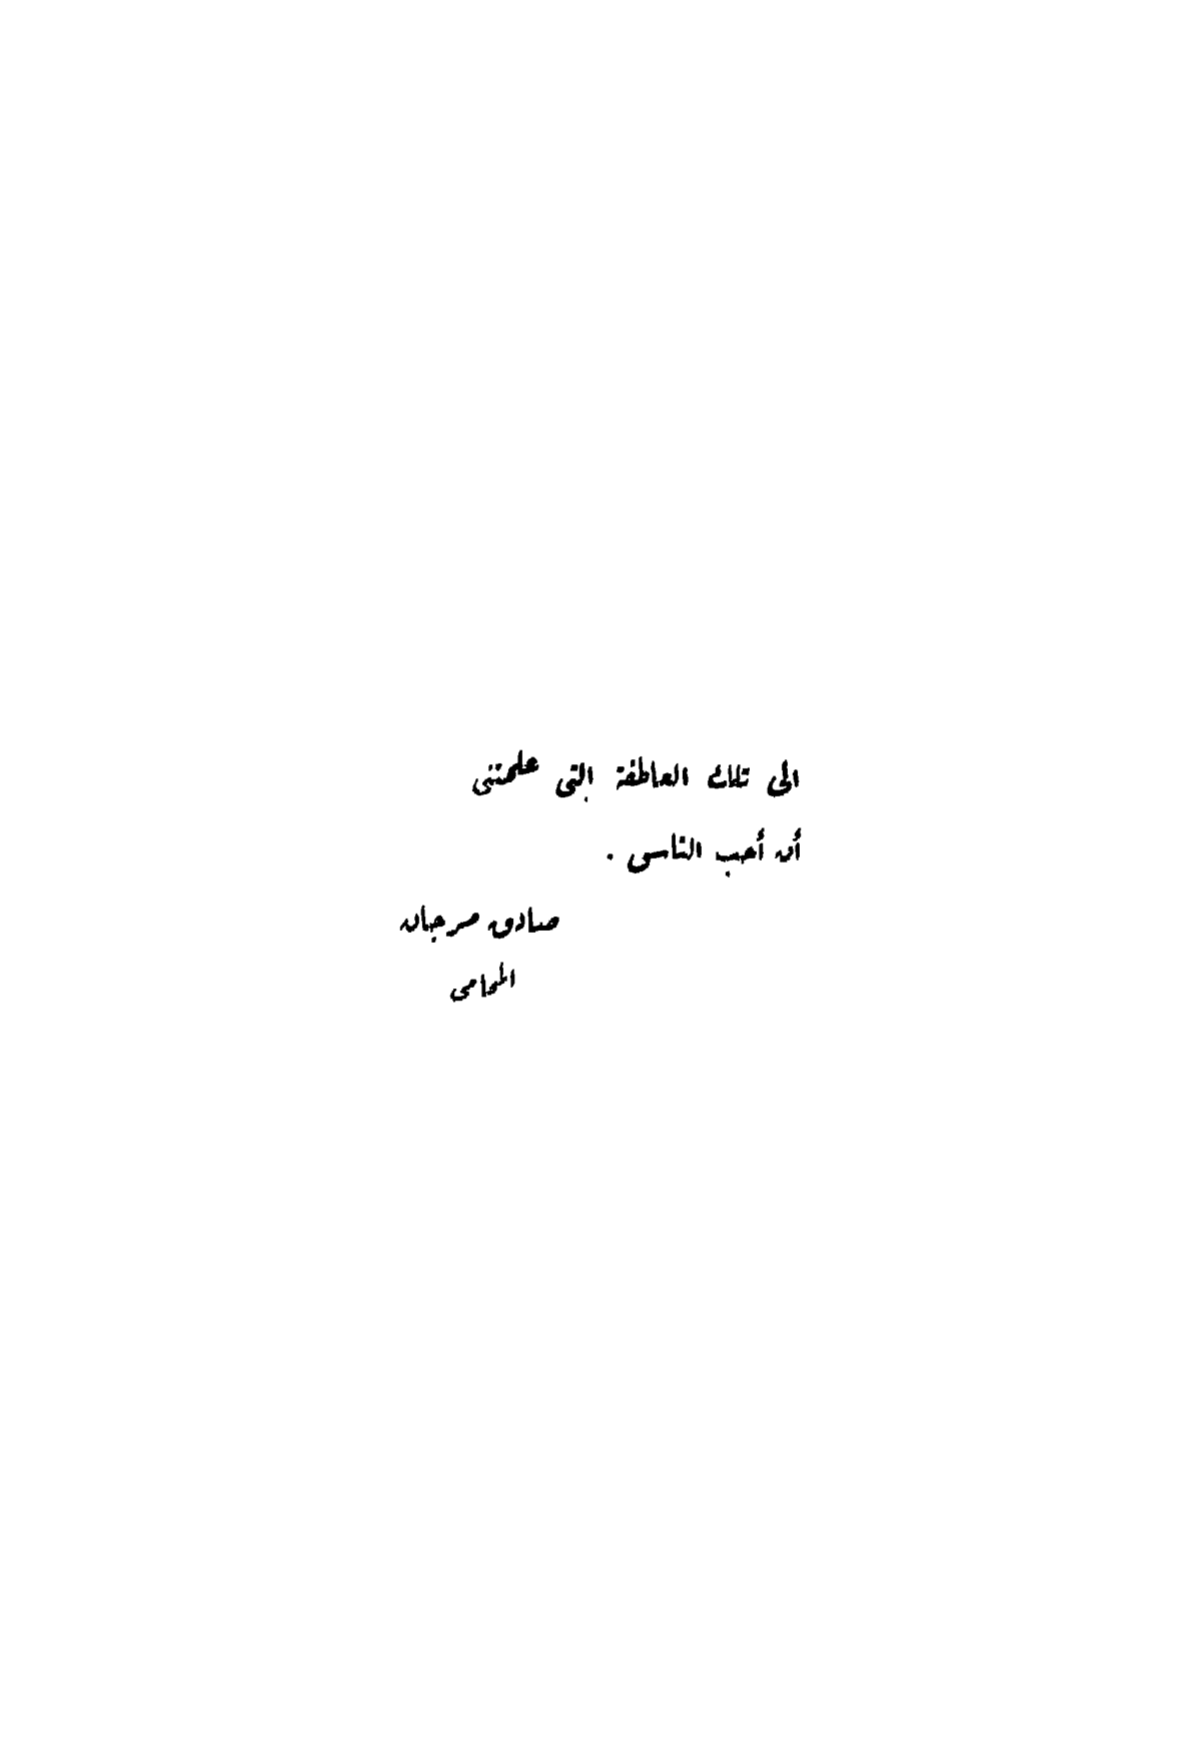 الى تلك العاطفة التى علمتنى
أن أحب الناس .
صادق مرجان
المحامى